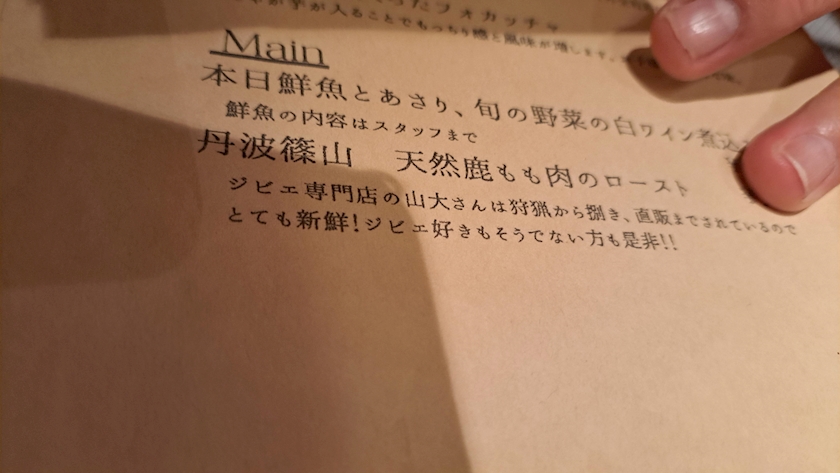 ったフォカッチャ
が入ることでもっちり感と風味が増します。
Main
本日鮮魚とあさり、旬の野菜の白ワイン煮込
鮮魚の内容はスタッフまで
丹波篠山 天然鹿もも肉のロースト
ジビエ専門店の山大さんは狩猟から捌き、直販までされているので
とても新鮮!ジビエ好きもそうでない方も是非!!